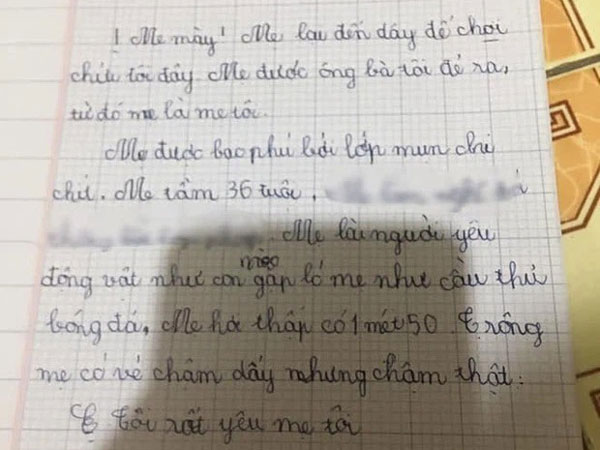 ! Mẹ mày! Mẹ lại đến đây để chơi
chiêu tôi đây. Mẹ được ông bà tôi đẻ ra,
từ đó mẹ là mẹ tôi.
Mẹ được bao phủ bởi lớp mụn chi
chít. Mẹ tầm 36 tuổi.
. Mẹ là người yêu
động vật như con mèo gặp ló mẹ như cầu thủ
bóng đá, Mẹ hơi thấp có 1 mét 50 Trông
mẹ có vẻ chậm đấy nhưng chậm thật.
Tôi rất yêu mẹ tôi